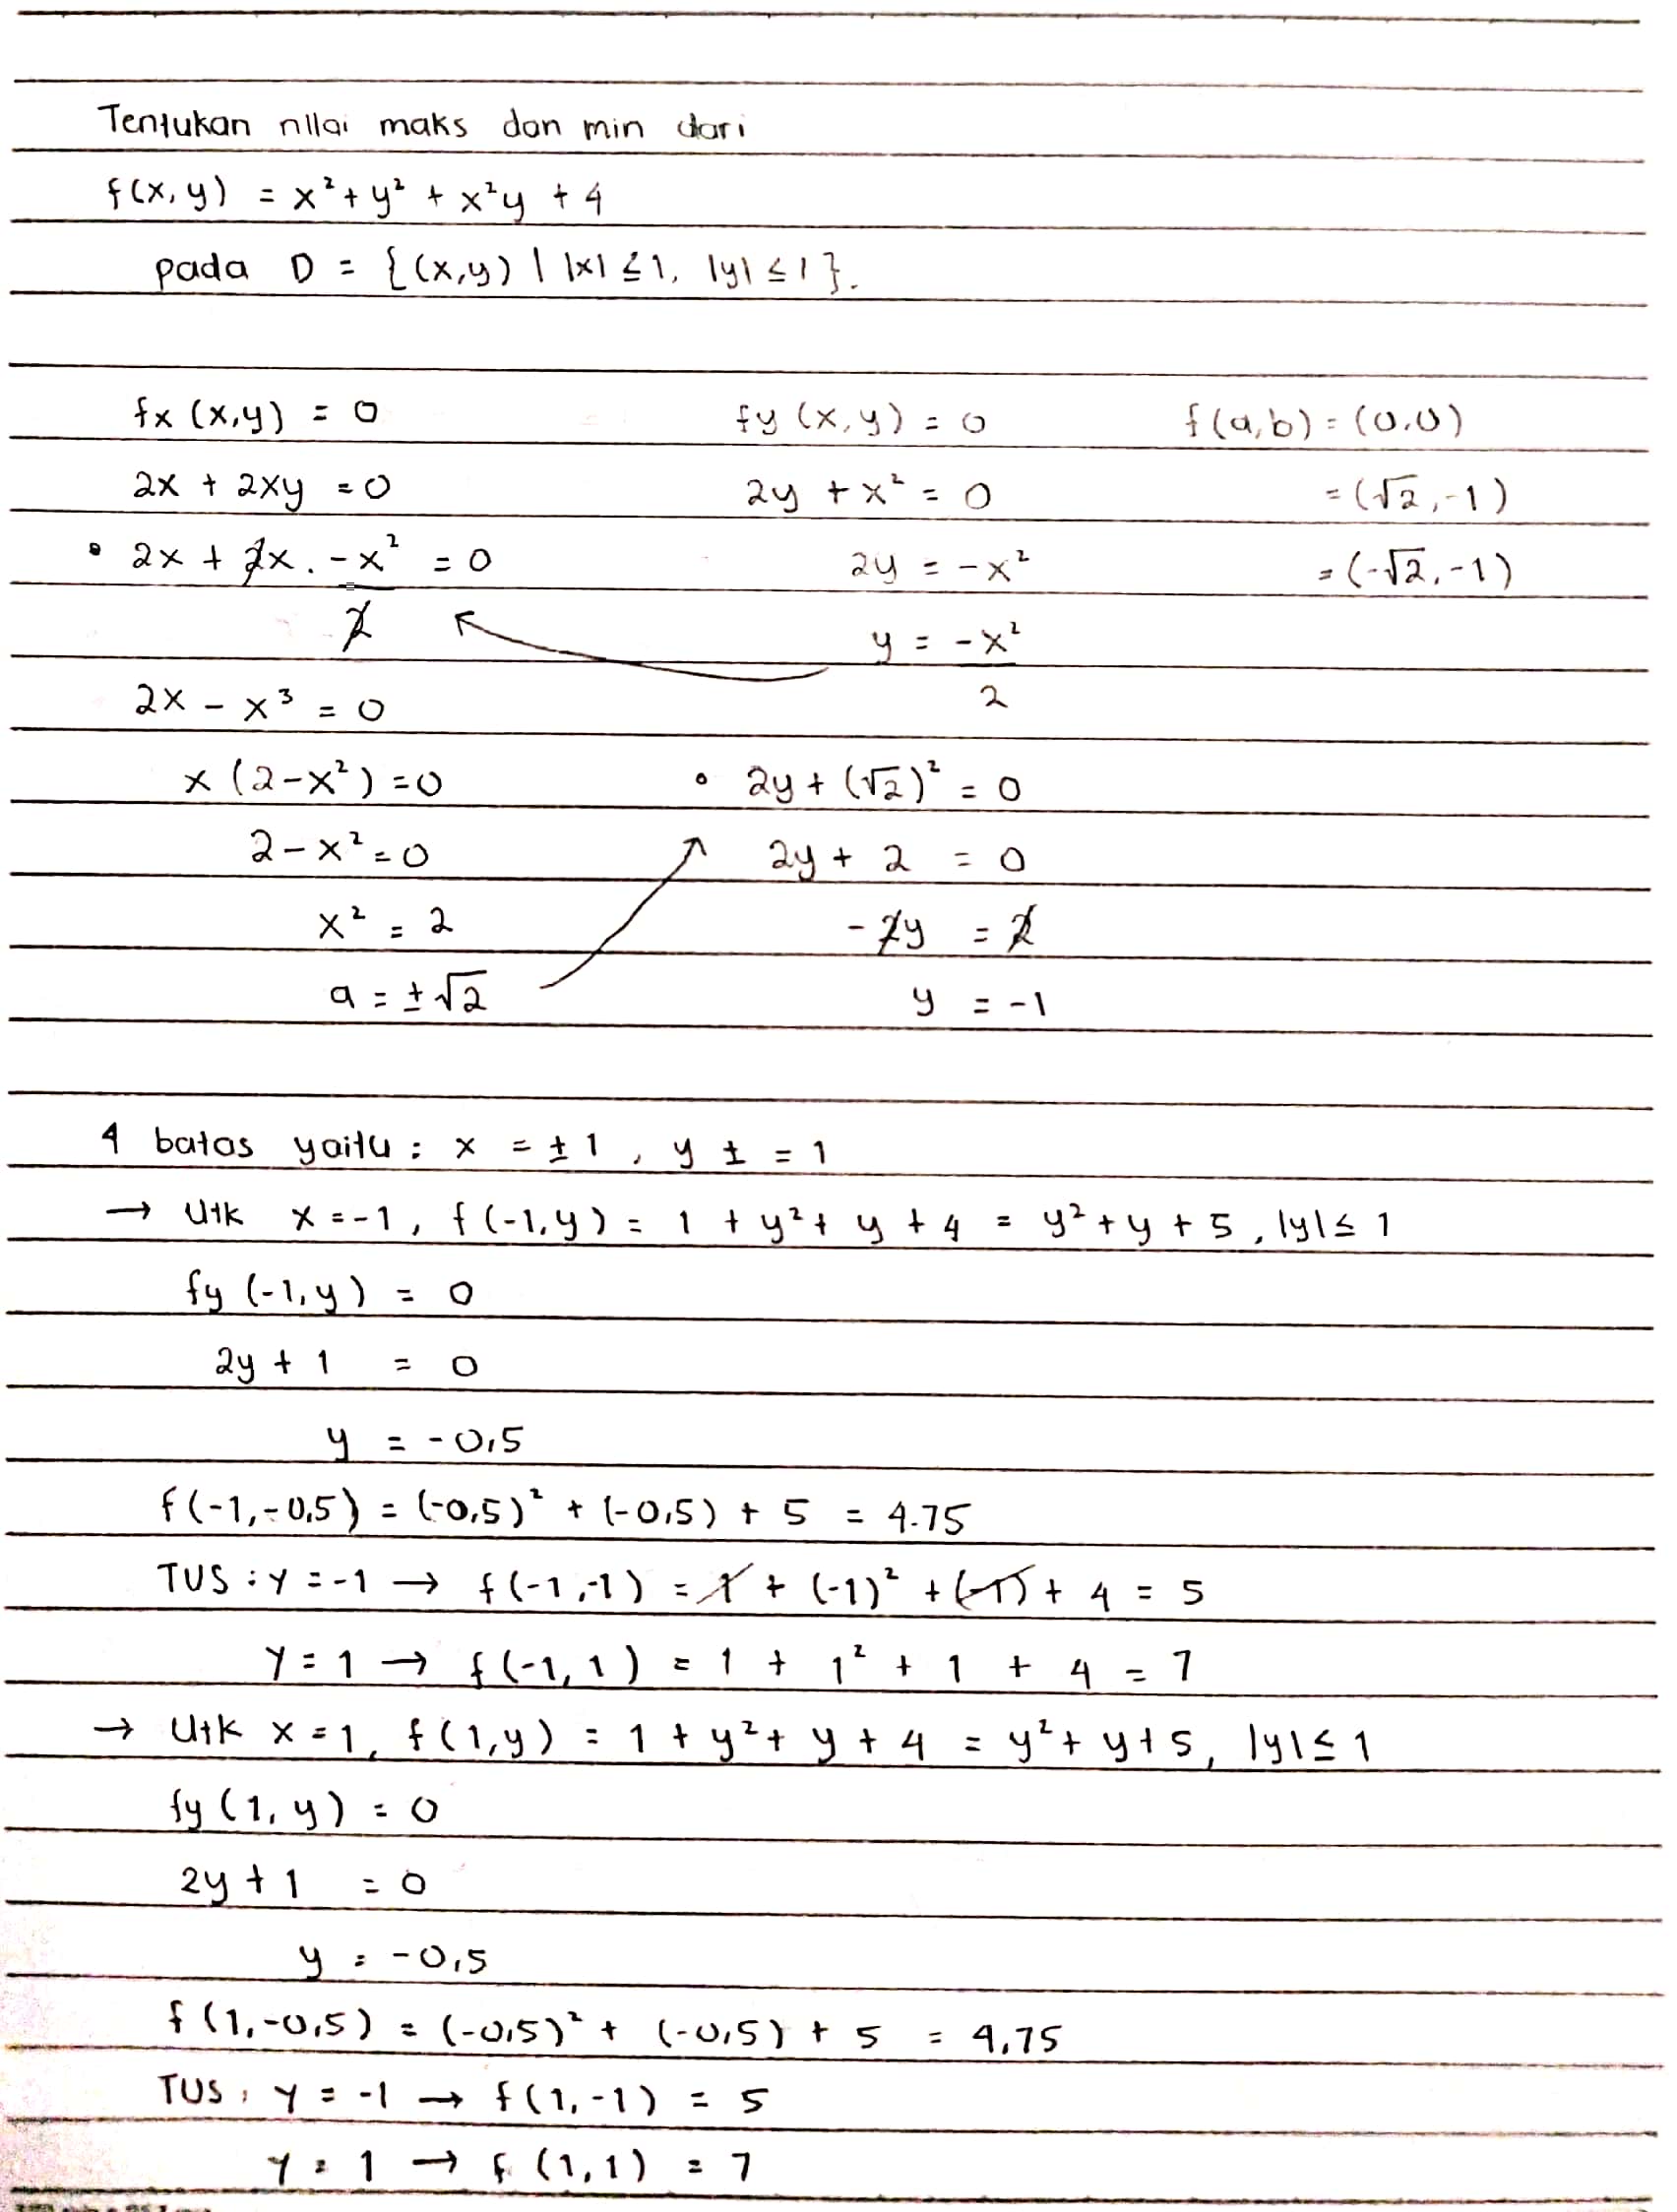 Tentukan nilai maks dan min dari
f(x,y) = x² + y² + x²y + 4
pada D = {(x,y) | |x| ≤ 1, |y| ≤ 1}.
fx (x,y) = 0 fy (x,y) = 0 f(a,b) = (0,0)
2x + 2xy = 0 2y + x² = 0 = (√2, -1)
• 2x + 2x . -x² = 0 2y = -x² = (-√2, -1)
2 y = -x²
2x - x³ = 0 2
x (2-x²) = 0 • 2y + (√2)² = 0
2 - x² = 0 2y + 2 = 0
x² = 2 -2y = 2
a = ±√2 y = -1
4 batas yaitu : x = ± 1 , y ± = 1
→ Utk x = -1, f(-1,y) = 1 + y² + y + 4 = y² + y + 5, |y| ≤ 1
fy (-1,y) = 0
2y + 1 = 0
y = -0,5
f(-1,-0,5) = (-0,5)² + (-0,5) + 5 = 4.75
TUS : y = -1 → f(-1,-1) = 1 + (-1)² + (-1) + 4 = 5
y = 1 → f(-1, 1) = 1 + 1² + 1 + 4 = 7
→ Utk x = 1, f(1,y) = 1 + y² + y + 4 = y² + y + 5, |y| ≤ 1
fy (1, y) = 0
2y + 1 = 0
y = -0,5
f (1,-0,5) = (-0,5)² + (-0,5) + 5 = 4,75
TUS : y = -1 → f(1,-1) = 5
y = 1 → f (1,1) = 7